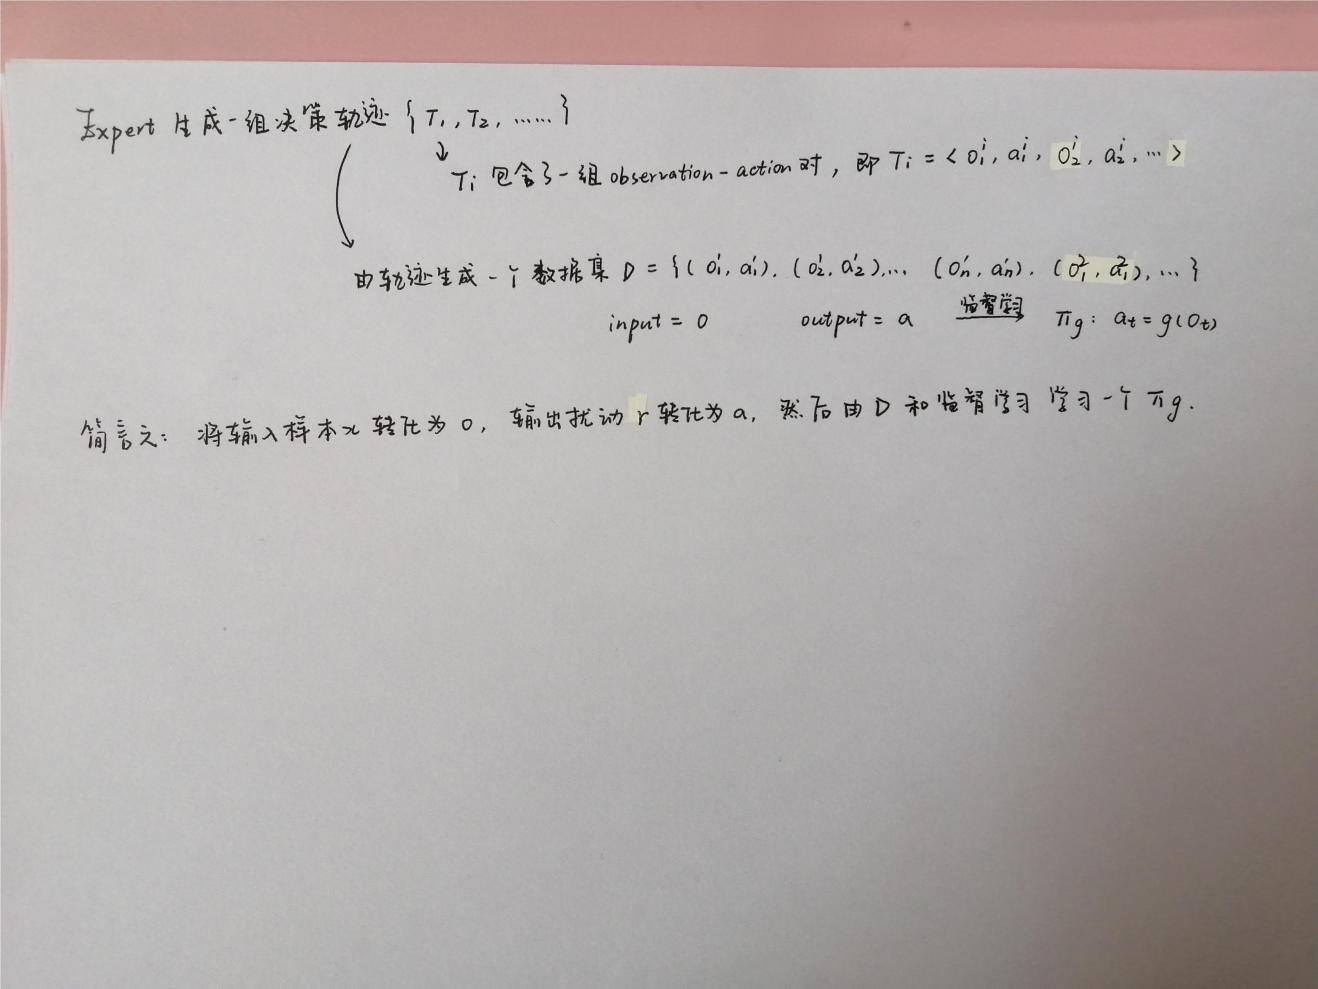 Expert 生成一组决策轨迹 { T₁, T₂, …… }
↓ Tᵢ 包含了一组 observation-action 对, 即 Tᵢ = < o₁ⁱ, a₁ⁱ, o₂ⁱ, a₂ⁱ, … >
由轨迹生成一个数据集 D = { (o₁¹, a₁¹), (o₂¹, a₂¹), … (oₙ¹, aₙ¹), (o₁², a₁²), … }
input = o output = a 监督学习 → πg: aₜ = g(oₜ)
简言之: 将输入样本x转化为o, 输出扰动r转化为a, 然后由D和监督学习 学习一个 πg.